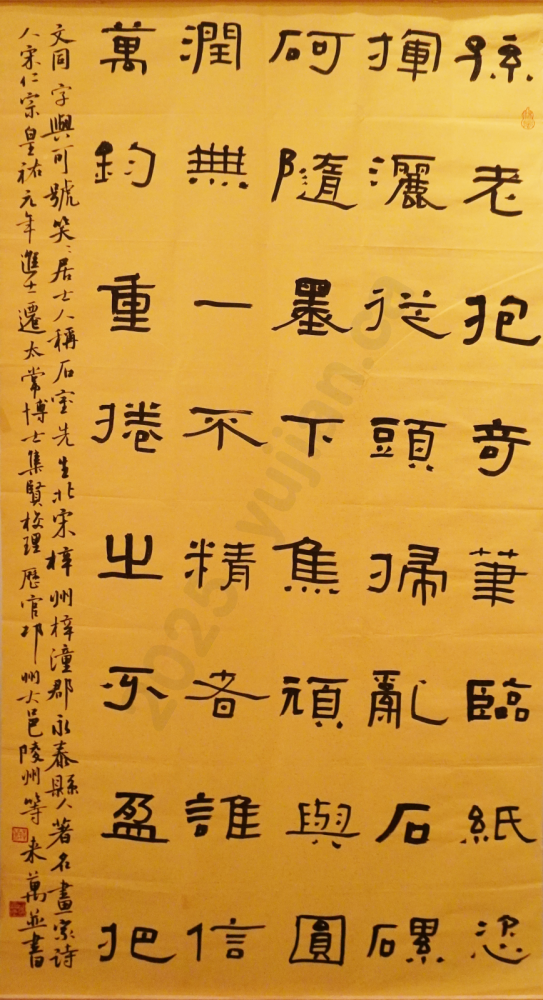 孫老抱奇筆臨紙恣
揮灑從頭掃亂石磥
砢隨墨下焦頑與圓
潤無一不精者誰信
萬鈞重捲之不盈把
文同字與可號笑笑居士人稱石室先生北宋梓州梓潼郡永泰縣人著名畫家詩
人宋仁宗皇祐元年進士遷太常博士集賢校理歷官邛州大邑陵州等 來萬並書
2025 yujian.cn